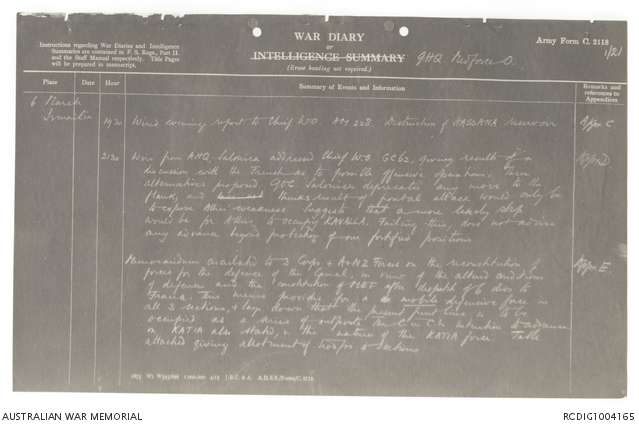 Instructions regarding War Diaries and Intelligence
Summaries are contained in F. S. Regs., Part II.
and the Staff Manual respectively. Title Pages
will be prepared in manuscript.
WAR DIARY
or
INTELLIGENCE SUMMARY
(Erase heading not required.)
GHQ Medforce O.
Army Form C. 2118
1/21
Place
Date
Hour
Summary of Events and Information
Remarks and
references to
Appendices
6 March
Ismailia
1930
Wired evening report to Chief W.O. 228. Destruction of HASSANA reservoir
Appx C
2130
Wire from AHQ. Salonica addressed Chief W.O. GC 62, giving result of a
discussion with the French as to possible offensive operations. Three
alternatives proposed. GOC Salonica deprecates any move to the
flank, and thinks result of frontal attack would only be
to expose Allies weakness. Suggests that a more likely step
would be for Allies to occupy KAVALLA. Failing this, does not advise
any advance beyond protecting of our fortified positions
Appx D
Memorandum circulated to 3 Corps & A & NZ Forces on the reconstitution of
forces for the defence of the Canal, in view of the altered conditions
of defence and the constitution of MEF after despatch of 6 divs to
France. This means provides for a mobile defensive force in
all 3 sections, & lays down that the present front line is to be
occupied as a series of outposts. The C in C's intention to advance
on KATIA also stated, & the nature of the KATIA force. Table
attached giving allotment of troops to Sections
Appx E
1875 Wt. W593/826 1,000,000 4/15 J.B.C. & A. A.D.S.S./Forms/C. 2118.
AUSTRALIAN WAR MEMORIAL
RCDIG1004165